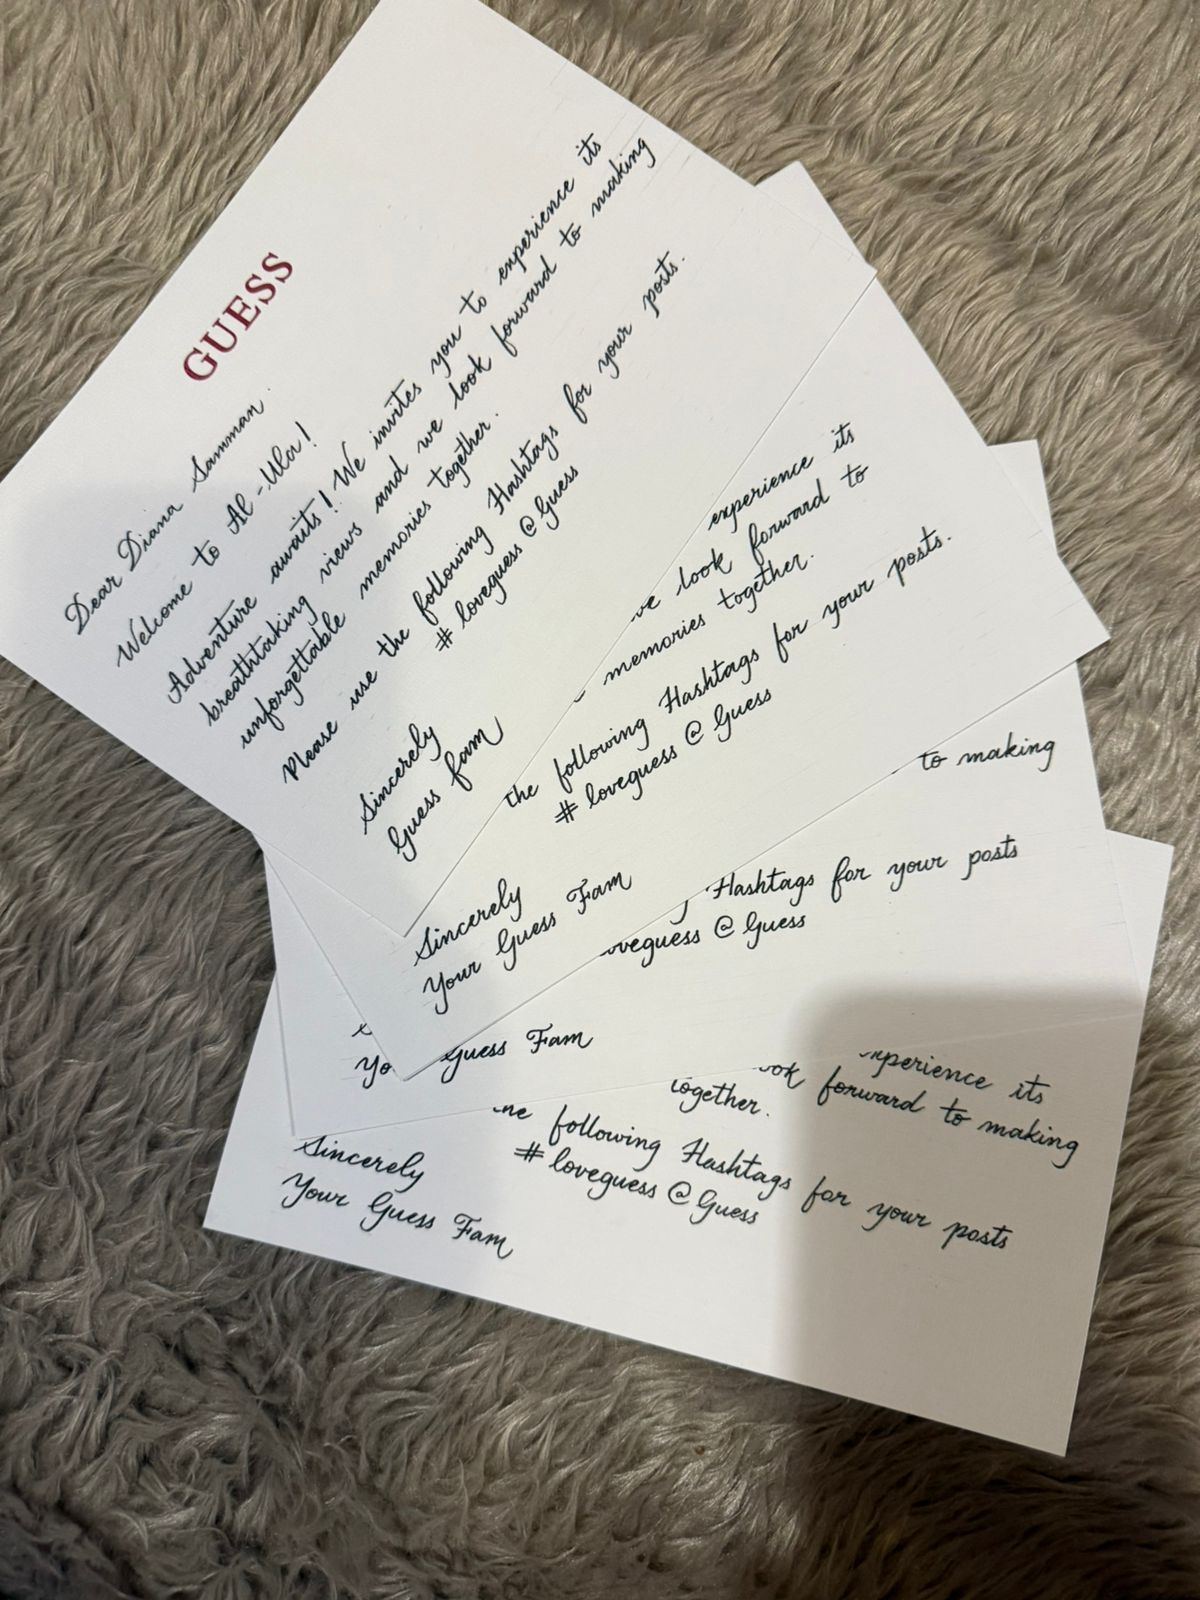 GUESS
Dear Diana Samman.
Welcome to Al-Ula!
Adventure awaits! We invites you to experience its
breathtaking views and we look forward to making
unforgettable memories together.
Please use the following Hashtags for your posts.
# loveguess @ Guess
Sincerely
Guess fam
experience its
look forward to
memories together.
the following Hashtags for your posts.
# loveguess @ Guess
Sincerely
Your Guess Fam
to making
Hashtags for your posts
@ Guess
Guess Fam
its
forward to making
together.
following Hashtags for your posts
# loveguess @ Guess
Sincerely
Your Guess Fam